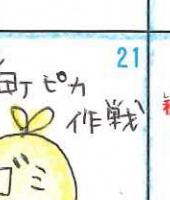 21
町ピカ
作戦
ゴミ